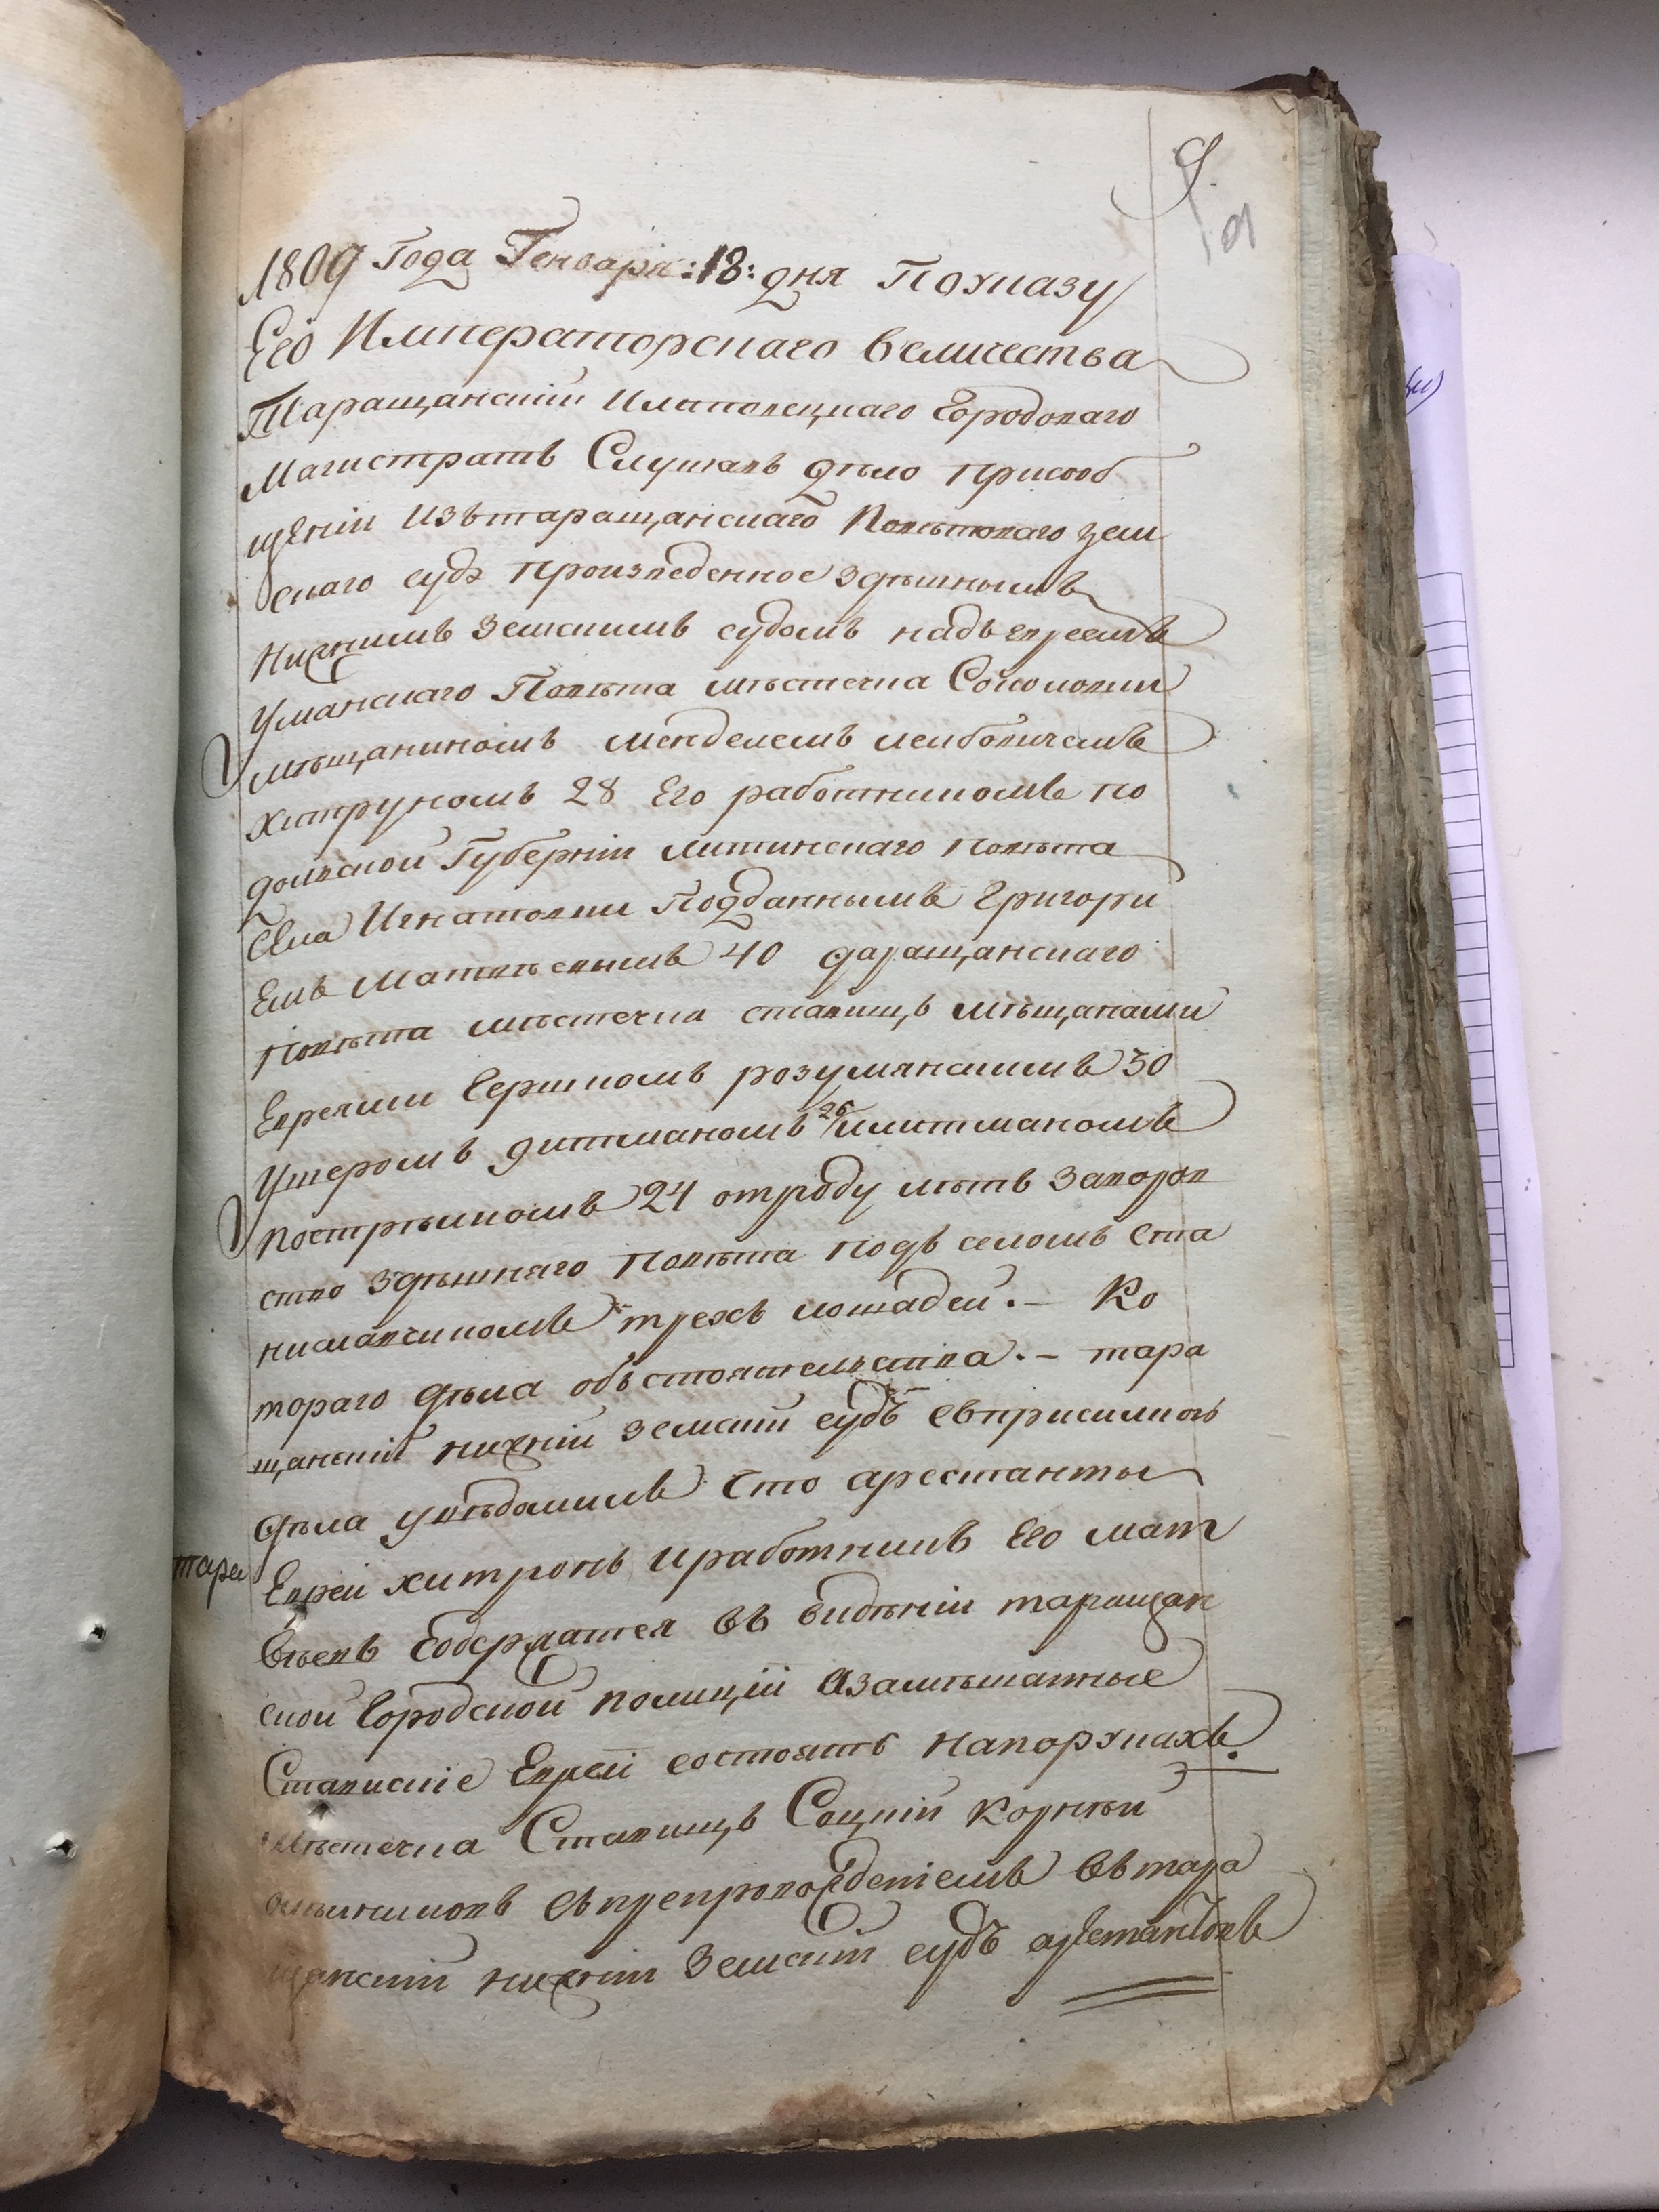 9
9
1809 Года Генваря :18: дня По указу
Его Императорскаго Величества
Таращанский Словесный Городоваго
Магистратъ Слушавъ дѣло при сооб
щении изъ таращанскаго Поветоваго зем
скаго суда произведенное здѣшнымъ
Нижнимъ Земскимъ судомъ надъ евреемъ
Уманскаго Повѣта мѣстечка Соколовки
мѣщаниномъ Менделемъ Лейбовичемъ
Хитруномъ 28 Его работникомъ по
дольской Губернiи Литинскаго повѣта
села Игнатовки Подданнымъ Григори
емъ Матвѣевымъ 40 даращанскаго
повѣта мѣстечка ставищъ мѣщанами
Евреями Гершкомъ розумянскимъ 30
Ушеромъ дитманомъ 26 литманомъ
Пострѣлкомъ 24 отроду лѣтъ Заворов
ство здѣшняго повѣта подъ селомъ Ста
ниславчикомъ трехъ лошадей. – Ко
тораго дѣла обстоятельства. – тара
щанскiй нижнiй земскiй судъ съ присилкою
дѣла увѣдомилъ Сто арестанты
Еврей хитронъ и работникъ Его мат
тара
вѣевъ Содержатся въ видѣнiи таращан
ской Городской полицiи а замѣшатные
Ставискiе Евреи состоятъ на порукахъ.
Мѣстечка Ставищъ Соцкiй Корнѣй
съ препровожденiемъ въ тара
щанскiй нижнiй Земскiй судъ арестантовъ